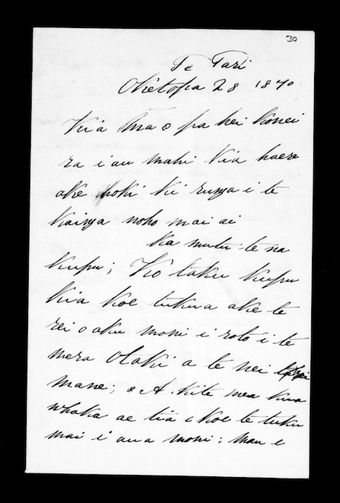 30
Te Tari
Oketopa 28 1870
Kia ma o pa hei konei
ra i au mahi kia haere
ake hoki ki runga i te
kainga noho mai ai
ka mutu te na
kupu; Ko taku kupu
kia koe tukua ake te
rei o aku moni i roto i te
mera Otaki a te nei
mane; A. Kite mea kua
whaka ae tia e koe te tuku
mai i aua moni: Mau e